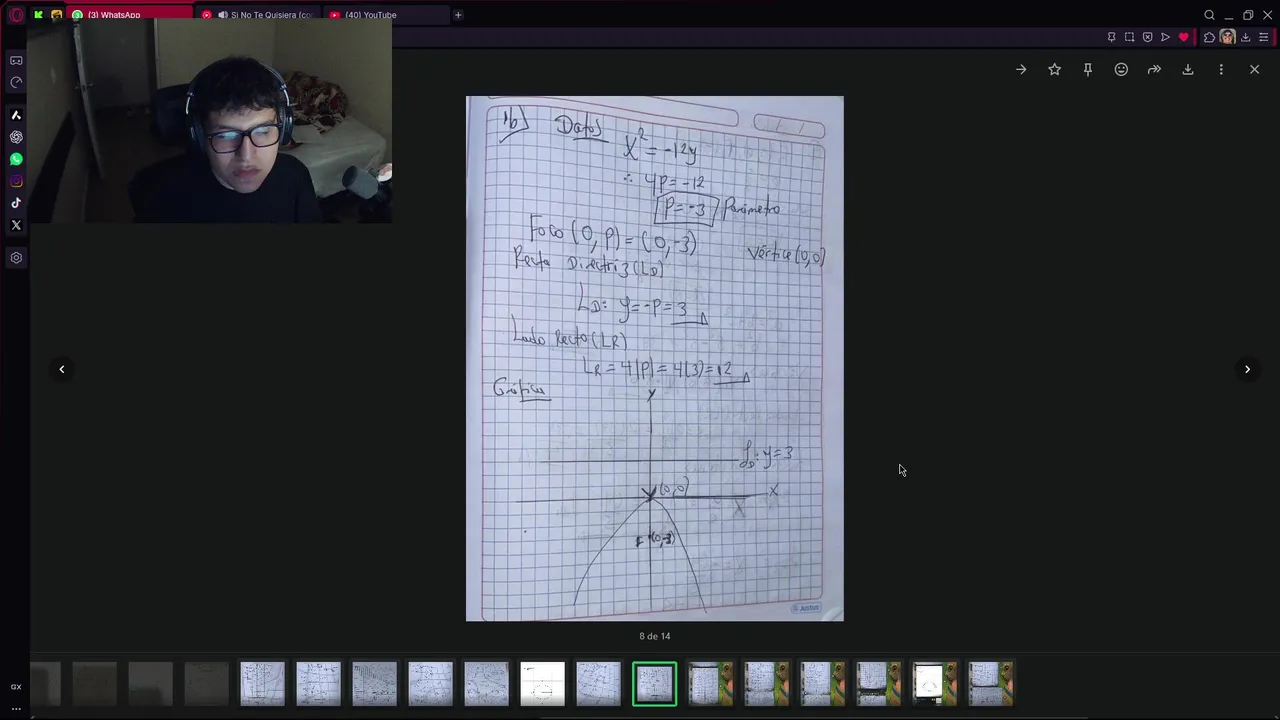 (3) WhatsApp
Si No Te Quisiera (co
(40) YouTube
16) Datos
x² = -12y
∴ 4P = -12
P = -3 Parámetro
Foco (0, P) = (0, -3)
Vértice (0,0)
Recta Directriz (LD)
LD: y = -P = 3
Lado Recto (LR)
LR = 4|P| = 4(3) = 12
Gráfica
Y
LD: y = 3
V (0,0)
X
X
F (0,-3)
Justus
8 de 14
GX